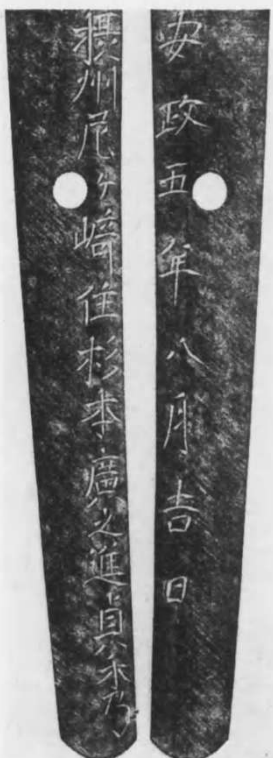 安政五年八月吉日
摂州尼ヶ崎住杉本廣之進